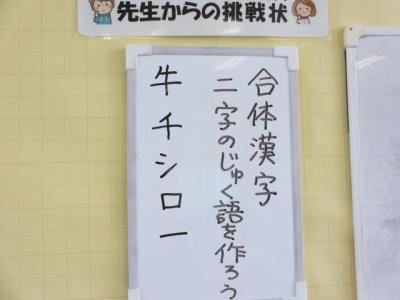 先生からの挑戦状
合体漢字
二字のじゅく語を作ろう
牛チシロ一